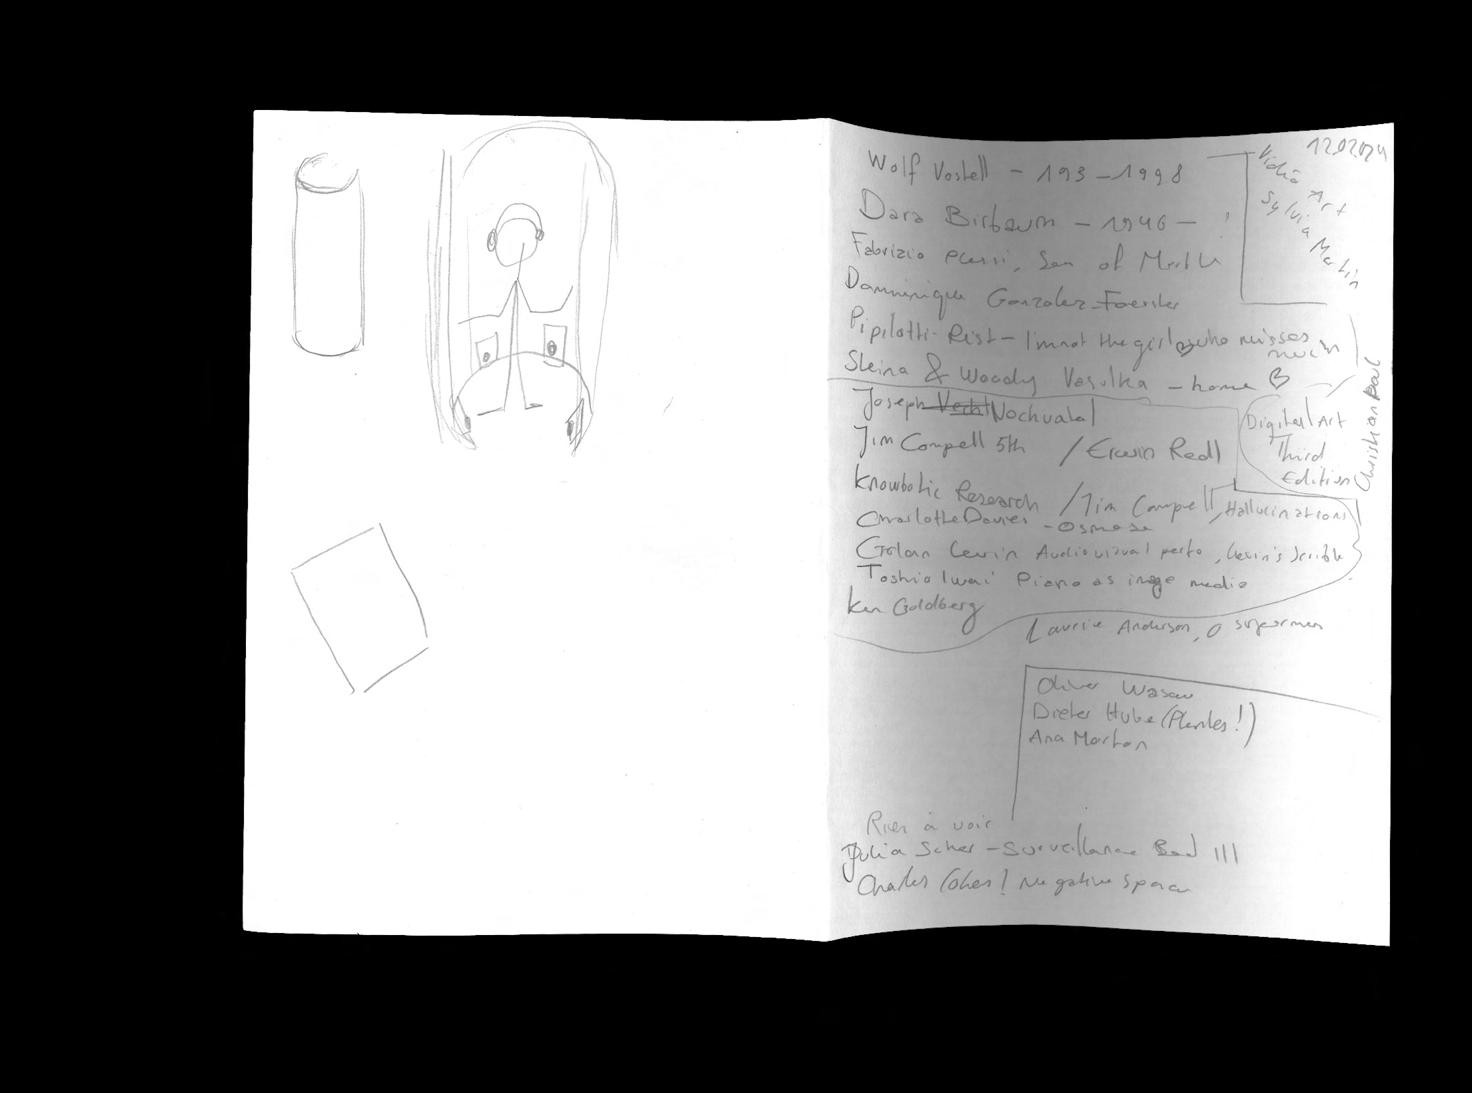 12.02.2024
Wolf Vostell - 193 - 1998
Vidéo Art
Sylvia Martin
Dara Birbaum - 1946 - !
Fabrizio Plessi, Sea of
Domminique Gonzalez-Foerster
Pipilotti Rist - I'm not the girl who misses
much
Steina & Woody Vasulka - home
Joseph Nechvatal
Digital Art
Third
Edition
Christian Paul
Jim Campell 5th / Erwin Redl
Knowbotic Research / Jim Campell, Hallucinations
Charlotte Davies - Osmose
Golan Levin Audiovizual perfo, Levin's Scribble
Toshio Iwai Piano as image media
Ken Goldberg
Laurie Anderson, O superman
Oliver Wasow
Dieter Hube (Plantes!)
Ana Marton
Rien à voir
Julia Scher - Surveillance Bed III
Charles Cohen! Negative space